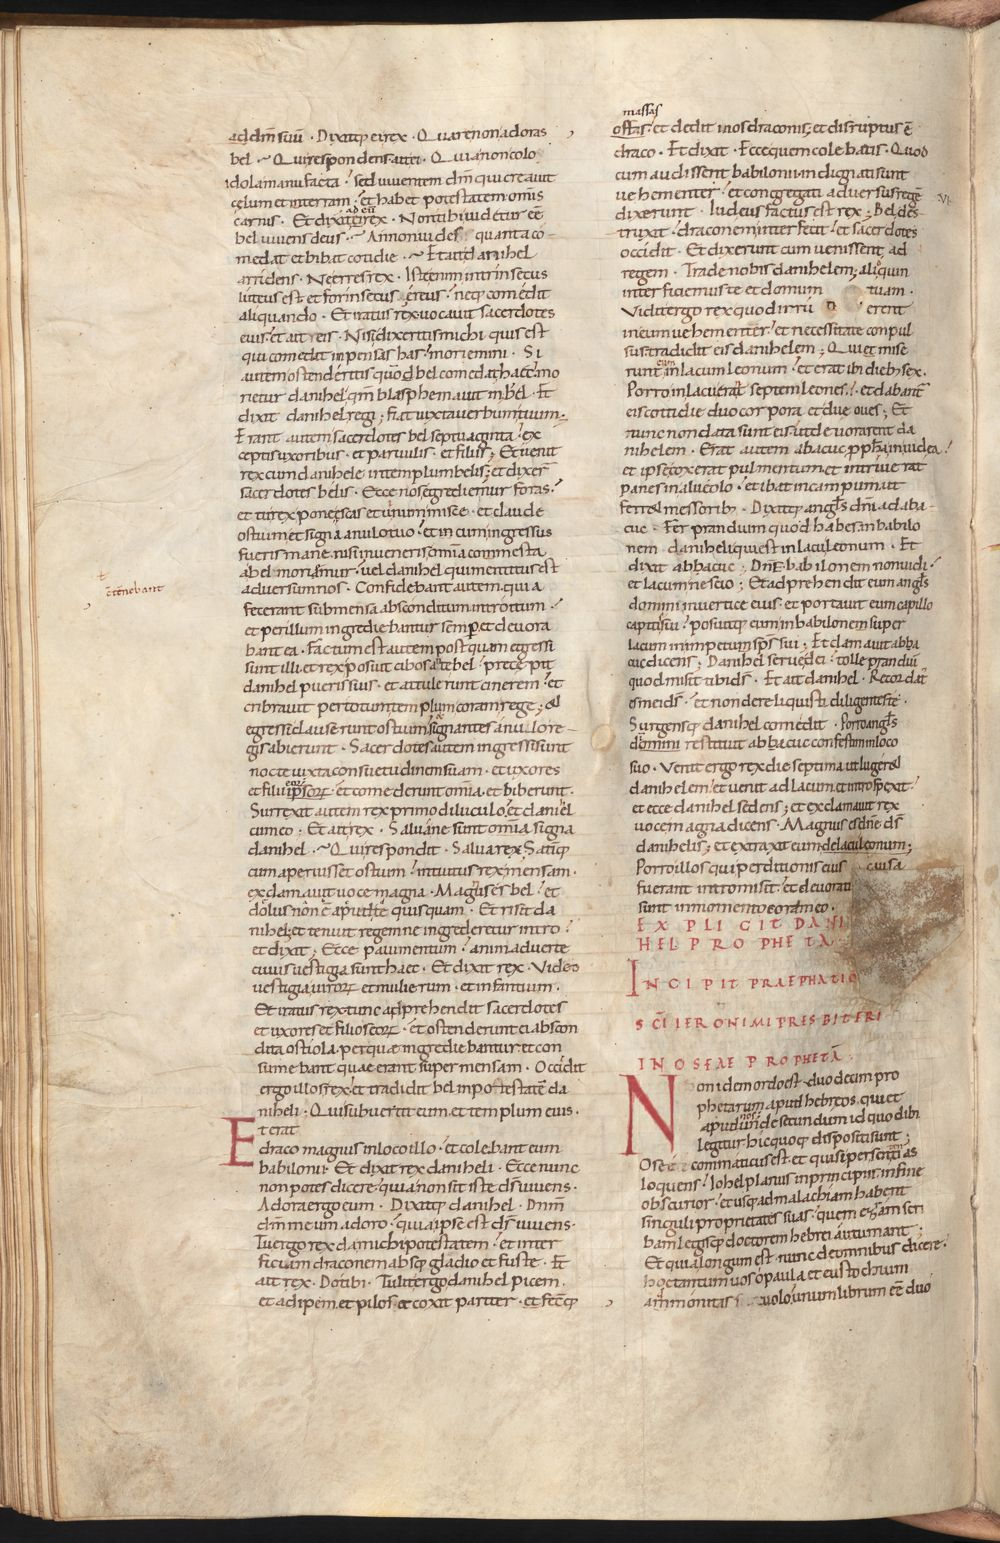 ad dm̄ suū · Dixitq; ei rex · Quare non adoras
bel · Qui respondens ait ei · Quia non colo
idola manu facta · sed viventem dm̄ qui creavit
cęlum et terram · et habet potestatem omnis
carnis · Et dixit ei rex · Non tibi videtur eē
ad eū
bel vivens deus · An non vides quanta co
medat et bibat cotidie · Et ait danihel
arridens · Ne erres rex · Iste enim intrinsecus
luteus est et forinsecus ęreus · neq; comedit
aliquando · Et iratus rex vocavit sacerdotes
eius · et ait eis · Nisi dixeritis michi quis est
qui comedit inpensas has · moriemini · Si
autem ostenderitis quod bel comedat haec · mo
rietur danihel · qm̄ blasphemavit in bel · Et
dixit danihel regi ; fiat iuxta verbum tuum ·
Erant autem sacerdotes bel septuaginta · ex
ceptis uxoribus · et parvulis · et filiis ; Et venit
rex cum danihele in templum belis ; et dixer̄
sacerdotes belis · Ecce nos egrediemur foras ·
et tu rex pone escas et vinum misce · et claude
ostium et signa anulo tuo · et cum ingressus
fueris mane nisi inveneris omnia commesta
a bel moriamur · vel danihel qui mentitus est
adversum nos · Confidebant autem quia
fecerant sub mensa absconditum introitum ·
et per illum ingrediebantur semp̄ et devora
bant ea · Factum est autem postquam egressi
sunt illi · et rex posuit cibos ante bel · precepit
danihel pueris suis · et attulerunt cinerem · et
cribravit per totum templum coram rege ; &
egressi clauserunt ostium · et signantes anulo re
gis abierunt · Sacerdotes autem ingressi sunt
nocte iuxta consuetudinem suam · et uxores
et filii ipsorū · et comederunt omīa · et biberunt ·
eorū
Surrexit autem rex primo diluculo · et daniel
cum eo · Et ait rex · Salvane sunt omīa signa
danihel · Qui respondit · Salva rex · Statimq;
cum aperuisset ostium · intuitus rex mensam ·
exclamavit voce magna · Magnus es bel · et
dolus non ē apud te quisquam · Et risit da
nihel · et tenuit regem ne ingrederetur intro ·
et dixit ; Ecce pavimentum · animadverte
cuius vestigia sunt haec · Et dixit rex · Video
vestigia virorū et mulierum · et infantium ·
Et iratus rex · tunc adprehendit sacerdotes
et uxores et filios eorū · et ostenderunt ei abscon
dita ostiola · per quae ingrediebantur · et con
sumebant quae erant super mensam · Occidit
ergo illos rex · et tradidit bel in potestatē da
niheli · Qui subvertit eum · et templum eius ·
Et erat
draco magnus in loco illo · et colebant eum
babilonii · Et dixit rex daniheli · Ecce nunc
non potes dicere · quia non sit iste ds̄ vivens ·
Adora ergo eum · Dixitq; danihel · Dnm̄
dm̄ meum adoro · quia ipse est ds̄ vivens ·
Tu ergo rex da michi potestatem · et inter
ficiam draconem absq; gladio et fuste · Et
ait rex · Do tibi · Tulit ergo danihel picem ·
et adipem · et pilos · et coxit pariter · et fecitq;
cētenebant
massas
offas · et dedit in os draconis ; et disruptus ē
draco · Et dixit · Ecce quem colebatis · Quod
cum audissent babilonii · indignati sunt
vehementer · et congregati adversus regē
dixerunt · Iudeus factus est rex ; Bel des
truxit · draconem interfecit · et sacerdotes
occidit · Et dixerunt cum venissent ad
regem · Trade nobis danihelem ; alioquin
interficiemus te et domum tuam ·
Vidit ergo rex quod irruerent
in eum vehementer · et necessitate conpul
sus · tradidit eis danihelem ; Qui et mise
runt eum in lacum leonum · et erat ibi dieb; sex ·
Porro in lacu erant septem leones · et dabant̄
eis cottidie duo corpora · et due oves ; Et
tunc non data sunt eis · ut devorarent da
nihelem · Erat autem abacuc pp̄ha in iudea ·
et ipse coxerat pulmentum · et intriverat
panes in alveolo · et ibat in campum · ut
ferret messorib; · Dixitq; angl̄s dn̄i ad aba
cuc · Fer prandium quod habes in babilo
nem daniheli qui est in lacu leonum · Et
dixit abbacuc ; Dnē babilonem non vidi ·
et lacum nescio ; Et adprehendit eum angl̄s
domini in vertice eius · et portavit eum capillo
capitis sui · posuitq; eum in babilonem super
lacum in impetu sp̄s sui ; Et clamavit abba
cuc dicens ; Danihel serve dei · tolle prandiū
quod misit tibi ds̄ · Et ait danihel · Recordat'
es mei ds̄ · et non dereliquisti diligentes te ·
Surgensq; danihel comedit · Porro angl̄s
domini restituit abbacuc confestim in loco
suo · Venit ergo rex die septima ut lugeret
danihelem · et venit ad lacum · et introspexit ·
et ecce danihel sedens ; et exclamavit rex
voce magna dicens · Magnus es dnē ds̄
danihelis ; et extraxit eum de lacu leonum ;
Porro illos qui perditionis eius causa
fuerant intromisit · et devorati
sunt in momento coram eo ·
EXPLICIT DANI
HEL PROPHETA
INCIPIT PRAEPHATIO
SC̄I IERONIMI PRESBITERI
IN OSEAE PROPHETĀ ·
Non idem ordo est · duodecim pro
phetarum apud hebreos · qui et
apud nos · unde secundum id quod ibi
legitur · hic quoq; dispositi sunt ;
Osee commaticus est · et quasi per sententias
loquens · Iohel planus in principiis · in fine
obscurior · et usq; ad malachiam habent
singuli proprietates suas · quem esdram scri
bam legisq; doctorem hebrei autumant ;
Et quia longum est · nunc de omnibus dicere ·
hoc tantum vos o paula et eustochium
ammonitas volo · unum librum eē duo